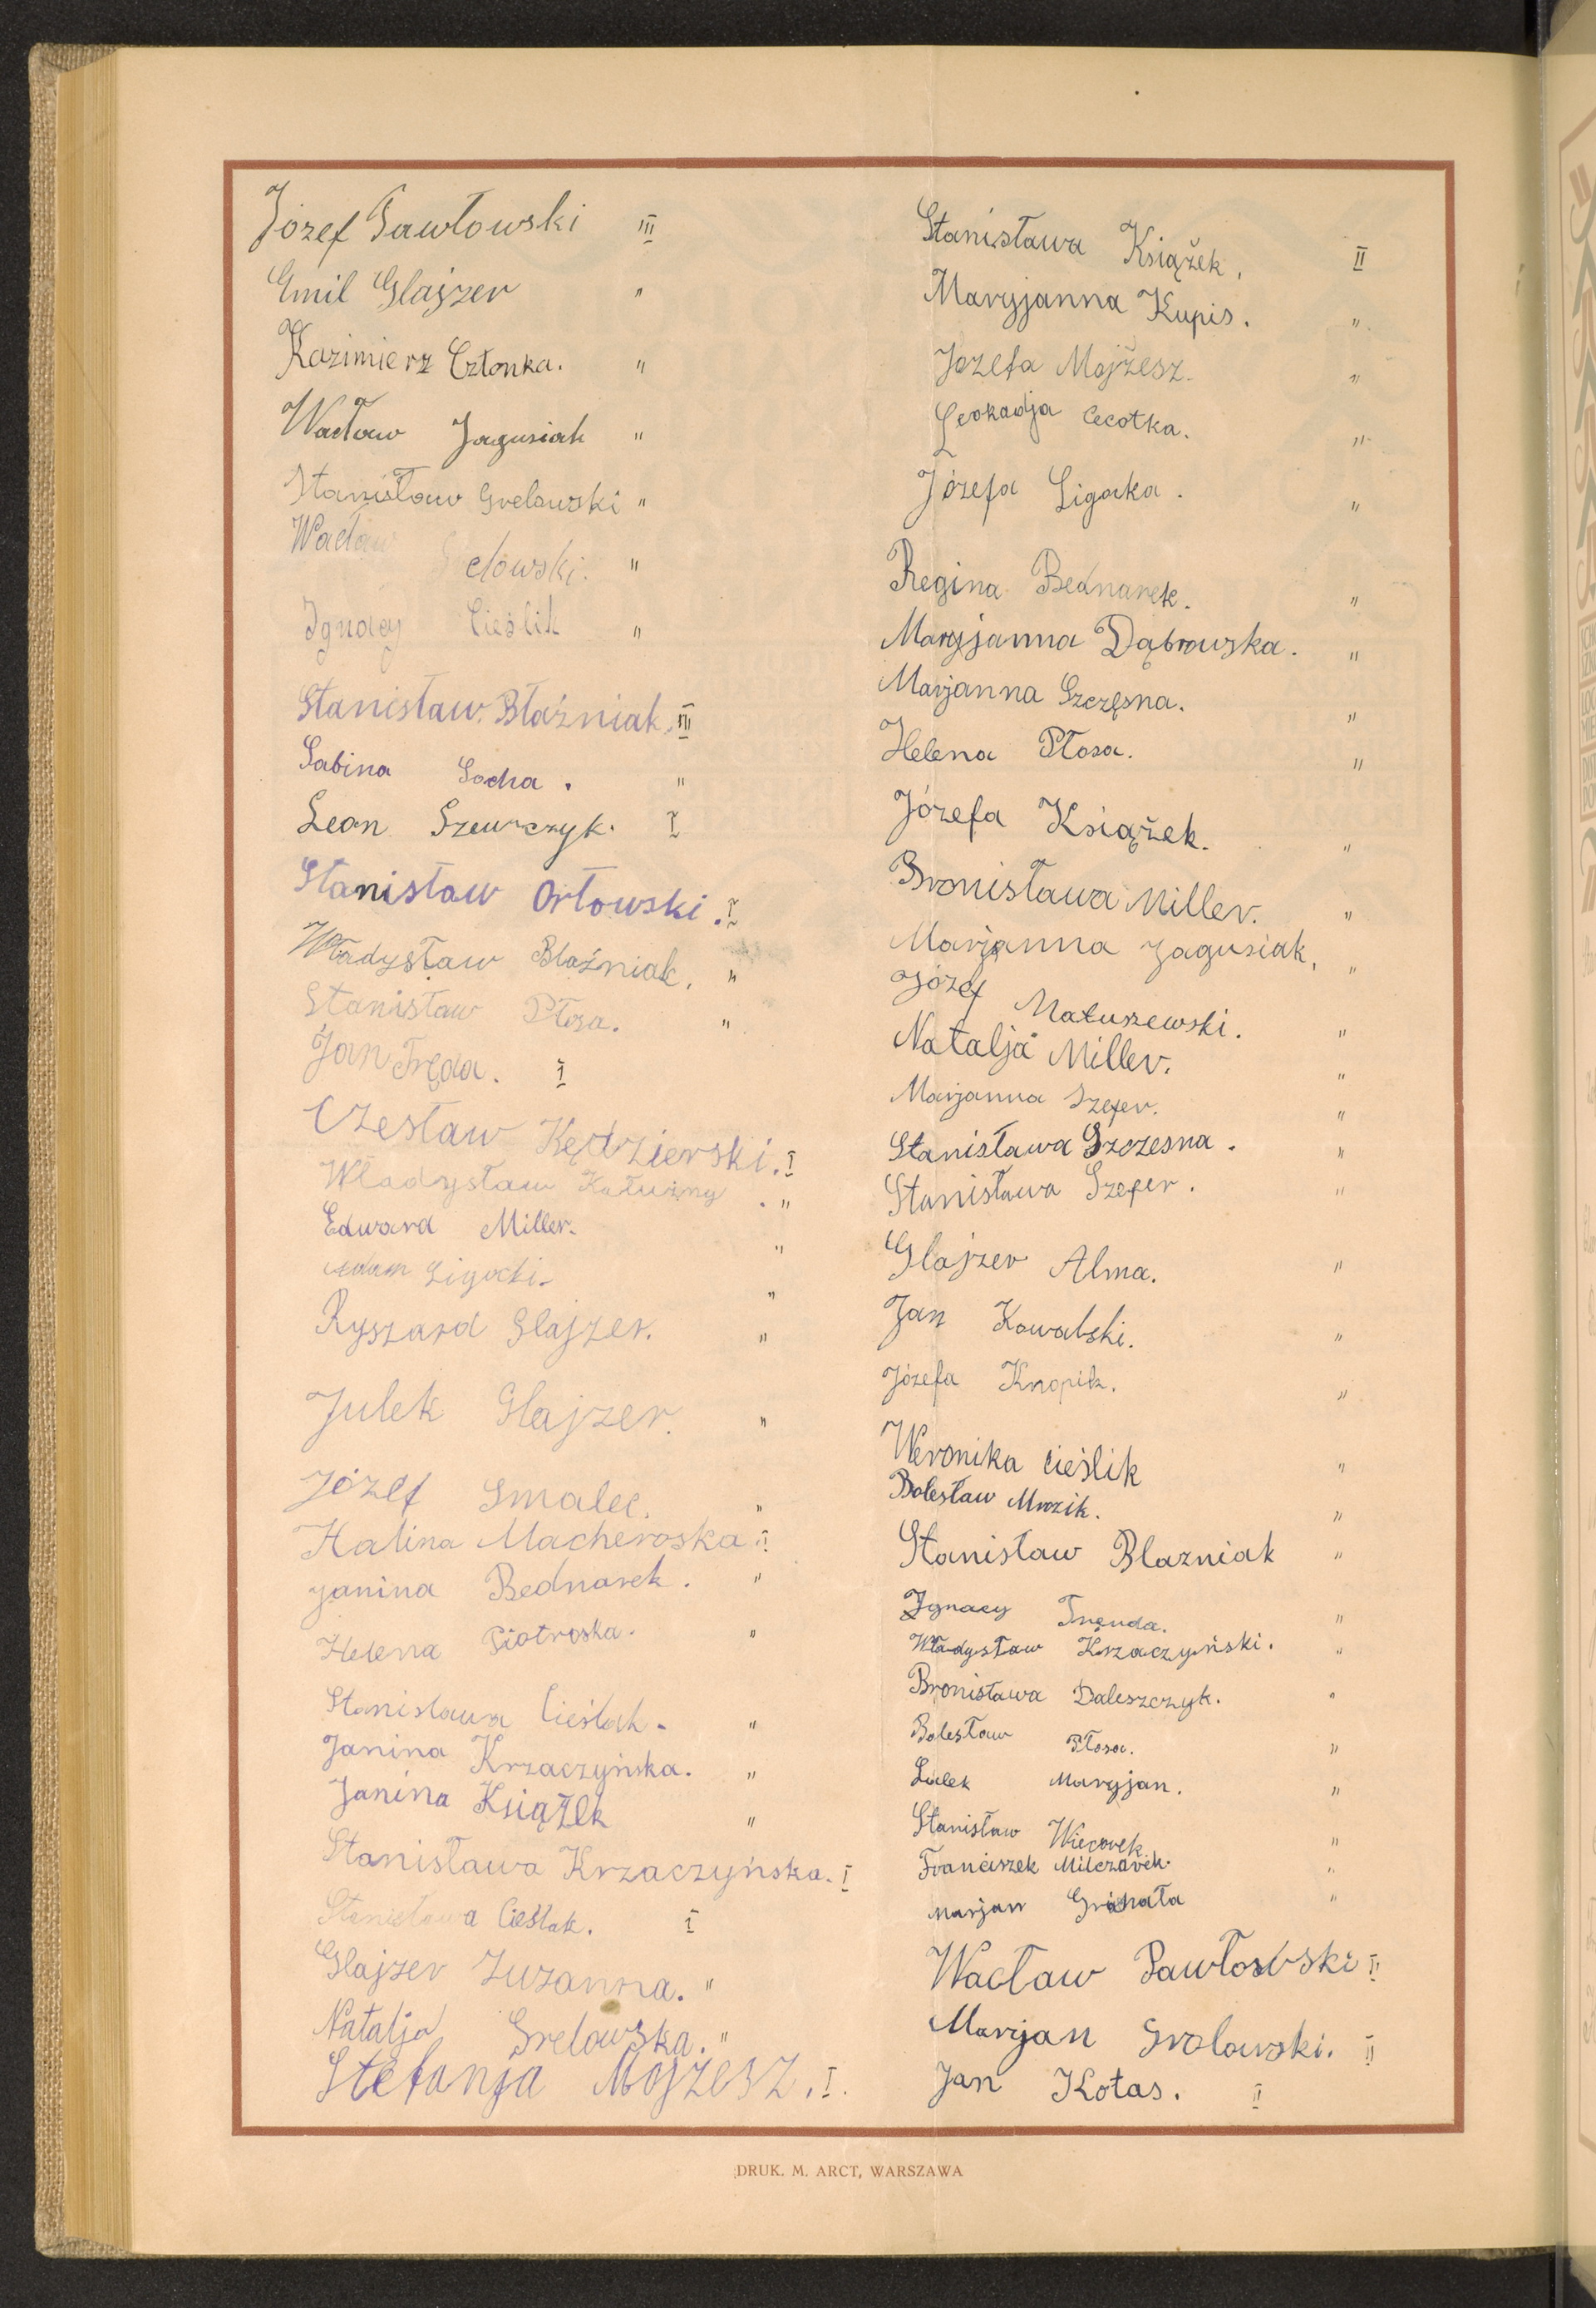 Józef Pawłowski III
Emil Glajzer "
Kazimierz Członka. "
Wacław Jagusiak "
Stanisław Grelowski "
Wacław
"
Ignacy Cieślik "
Stanisław Błaźniak. III
Sabina Socha. "
Leon Szewczyk. I
Stanisław Orłowski. I
Władysław Blaźniak. "
Stanisław Płosa. "
Jan Tręda. I
Czesław Kędzierski. I
Władysław Kałużny. "
Edward Miller. "
Adam Ligocki. "
Ryszard Glajzer. "
Julek Glajzer. "
Józef Smalec. "
Halina Macheroska. I
Janina Bednarek. "
Helena Piotroska. "
Stanisława Cieślak. "
Janina Krzaczyńska. "
Janina Książek "
Stanisława Krzaczyńska. I
Stanisława Cieślak. I
Glajzer Zuzanna. "
Natalja Grelowska. "
Stefanja Mojzesz. I.
Stanisława Książek, II
Maryjanna Kupis. "
Józefa Mojżesz. "
Leokadja Cecotka. "
Józefa Ligocka. "
Regina Bednarek. "
Maryjanna Dąbrowska. "
Marjanna Szczęsna. "
Helena Płosa. "
Józefa Książek. "
Bronisława Miller. "
Marjanna Jagusiak, "
Józef Matuszewski. "
Natalja Miller. "
Marjanna Szefer. "
Stanisława Szczesna. "
Stanisława Szefer. "
Glajzer Alma. "
Jan Kowalski. "
Józefa Knopik. "
Weronika Cieślik "
Bolesław Mrozik. "
Stanisław Blazniak "
Ignacy Trenda. "
Władysław Krzaczyński. "
Bronisława Daleszczyk. "
Bolesław Płosa. "
Lulek Maryjan. "
Stanisław Wiecorek. "
Franciszek Milczarek. "
Marjan "
Wacław Pawłowski II
Marjan Grolowski. II
Jan Kotas. II
DRUK. M. ARCT, WARSZAWA